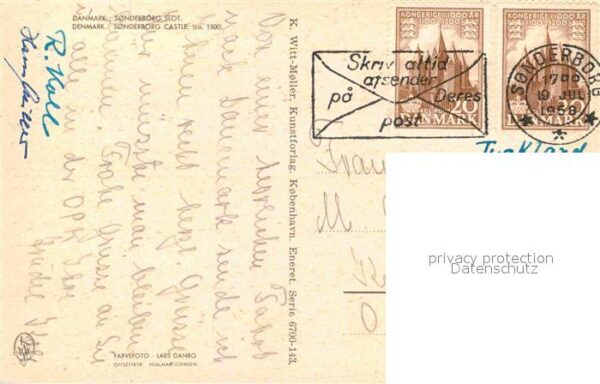 DANMARK. SØNDERBORG SLOT.
DENMARK. SØNDERBORG CASTLE. (ca. 1500)
R. Koll
Von einer herrlichen Fahrt
nach Dänemark sende ich
Ihnen recht herzl. Grüsse
hier müsste man bleiben
Frohe Grüsse an Sie
alle in der OPK Ihre
K. Witt-Møller, Kunstforlag, København. Eneret. Serie 6700-143.
FARVEFOTO · LARS DANBO
OFFSETTRYK HJALMAR JOENSEN
KONGERIGE I 1000 ÅR
KONGERIGE I 1000 ÅR
20
DANMARK
20
DANMARK
Skriv altid
afsender
på Deres
post
SØNDERBORG
19 JUL
1958
Tyskland
privacy protection
Datenschutz